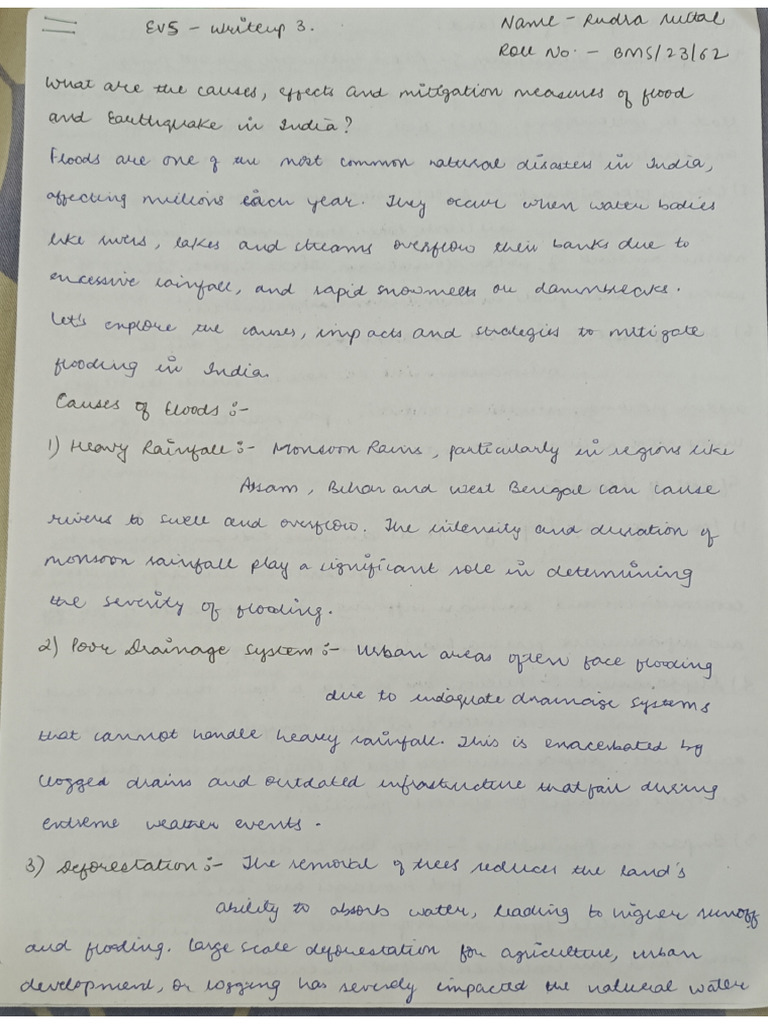 EVS - Writeup 3.
Name - Rudra Mittal
Roll No. - BMS/23/62
What are the causes, effects and mitigation measures of flood
and Earthquake in India?
Floods are one of the most common natural disasters in India,
affecting millions each year. They occur when water bodies
like rivers, lakes and streams overflow their banks due to
excessive rainfall, and rapid snowmelts or dammbreaks.
Let's explore the causes, impacts and strategies to mitigate
flooding in India.
Causes of Floods :-
1) Heavy Rainfall :- Monsoon Rains, particularly in regions like
Assam, Bihar and West Bengal can cause
rivers to swell and overflow. The intensity and duration of
monsoon rainfall play a significant role in determining
the severity of flooding.
2) Poor Drainage System :- Urban areas often face flooding
due to indaquate drainaige systems
that cannot handle heavy rainfall. This is exacerbated by
clogged drains and outdated infrastructure that fail during
extreme weather events.
3) Deforestation :- The removal of trees reduces the land's
ability to absorb water, leading to higher runoff
and flooding. Large scale deforestation for agriculture, urban
development, or logging has severly impacted the natural water